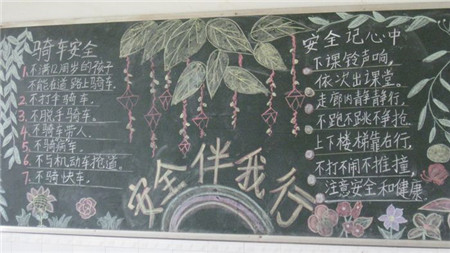 骑车安全
1. 不满12周岁的孩子
不能在道路上骑车.
2. 不打手骑车.
3. 不脱手骑车.
4. 不骑车带人.
5. 不骑病车.
6. 不与机动车抢道.
7. 不骑快车.
安全伴我行
安全记心中
下课铃声响,
依次出课堂.
走廊内静静行,
不跑不跳不争抢
上下楼梯靠右行,
不打不闹不推撞,
注意安全和健康